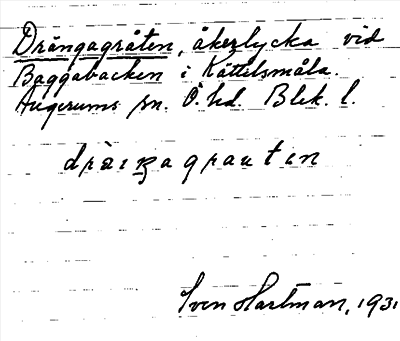 Drängagråten, åkerlycka vid
Baggabacken i Kättilsmåla.
Augerums sn. Ö. hd. Blek. l.
dräŋagrautin
Sven Hartman, 1931